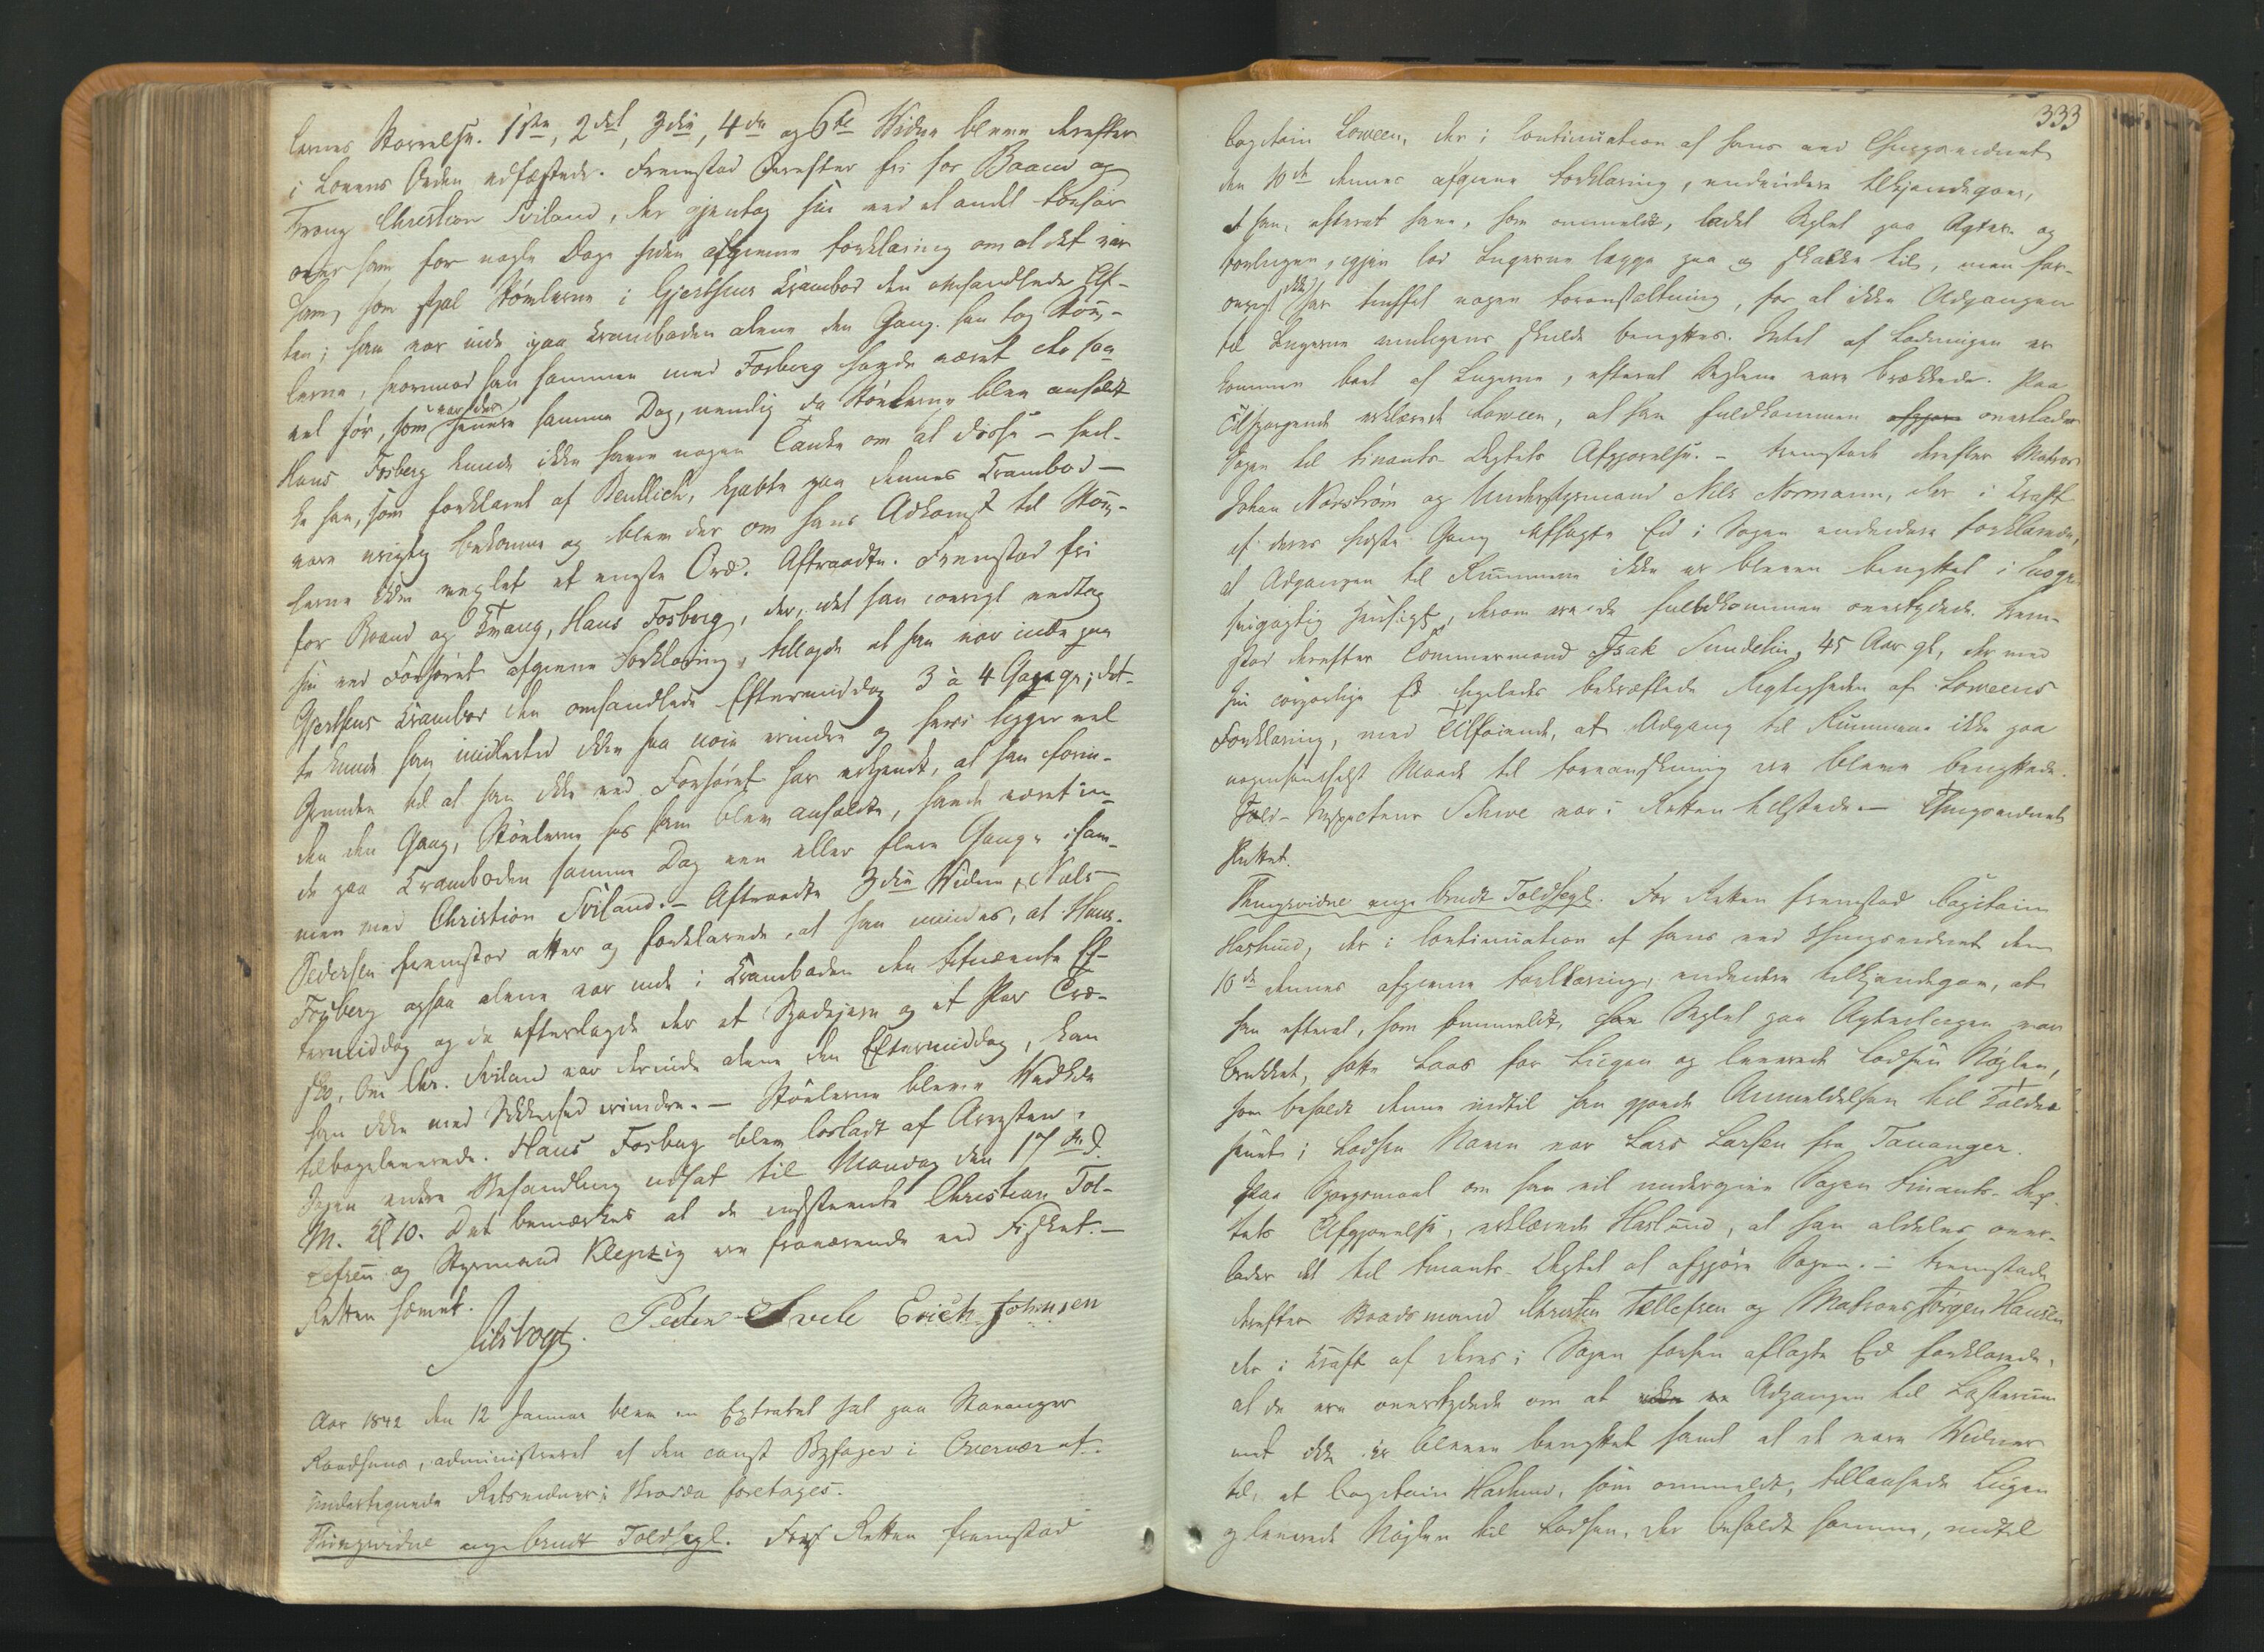 lernes Størrelse. 1ste, 2det, 3die, 4de og 6te Vidne bleve derefter
i Lovens Orden edfæstede. Fremstod derefter fri for Baand og
Tvang Christian Sviland, der gjentog sin ved et andet Forhør
over ham for nogle Dage siden afgivne Forklaring om at det var
ham, som stjal Støvlerne i Gjertsens Krambod den omhandlede Af-
ten; han var inde paa Kramboden alene den Gang han tog Støv-
lerne, hvorimod han sammen med Fosberg havde været der saa
vel før, som senere samme Dag, nemlig da Støvlerne blev anholdt
var der
Hans Fosberg kunde ikke have nogen Tanke om at disse – hvil-
ke han, som forklaret af Bentlich, kjøbte paa dennes Krambod –
vare urigtig bekomne og blev der om hans Adkomst til Støv-
lerne ikke vexlet et eneste Ord. Aftraadte. Fremstod fri
for Baand og Tvang, Hans Fosberg, der, idet han iøvrigt vedtog
sin ved Forhøret afgivne Forklaring, tillagde at han var inde paa
Gjertsens Krambod den omhandlede Eftermiddag 3 à 4 Gange; det-
te kunde han imidlertid ikke saa nøie erindre og heri ligger vel
Grunden til at han ikke ved Forhøret har erkjendt, at han foru-
den den Gang, Støvlerne hos ham blev anholdte, havde været in-
de paa Kramboden samme Dag een eller flere Gange sam-
men med Christian Sviland. – Aftraadte 3die Vidne, Niels
Pedersen fremstod atter og forklarede, at han mindes, at Hans
Fosberg ogsaa alene var inde i Kramboden den bemeldte Ef-
termiddag og da efterlagde der et Spadejern og et Par Træ-
sko. Om Chr. Sviland var derinde alene den Eftermiddag, kan
han ikke med Sikkerhed erindre. – Støvlerne bleve Vedkde
tilbageleverede. Hans Fosberg blev losladt af Arresten.
Sagen videre Behandling udsat til Mandag den 17de d.
M. Kl 10. Det bemærkes at de indstevnte Christian Tol-
lefsen og Styrmand Klepzig ere fraværende ved Fisket. –
Retten hævet.
Peder Svele Erich Johnsen
Aar 1842 den 12 Januar blev en Extraret sat paa Stavanger
Raadhuus, administreret af den const Byfoged i Overvær af
undertegnede Retsvidner; Hvorda foretages:
Thingsvidne ang. brudt Toldsegl. For Retten fremstod
333
Capitain Loween, der i Continuation af hans ved Thingsvidnet
den 10de dennes afgivne Forklaring, endvidere tilkjendegav,
at han, efterat have, som anmeldt, ladet Seglet paa Agter- og
Forlugen, igjen lod Lugerne lægge paa og skalke til, men for-
øvrigt ikke har truffet nogen Foranstaltning, for at ikke Adgangen
til Lugerne muligens skulde benyttes. Intet af Ladningen er
kommen bort af Lugerne, efterat Seglene vare brækkede. Paa
Tilspørgende erklærede Loween, at han fuldkommen overlader
Sagen til Finants-Deptets Afgjørelse. – Fremstode derefter Matros
Johan Norström og Understyrmand Nils Normann, der i Kraft
af deres sidste Gang aflagte Ed i Sagen endvidere forklarede,
at Adgangen til Rummene ikke er bleven benyttet i nogen
svigagtig Hensigt, derom ere de fuldkommen overtydede. Frem-
stod derefter Tømmermand Isak Sundelin, 45 Aar gl, der med
sin corporlige Ed ligeledes bekræftede Rigtigheden af Loweens
Forklaring, med Tilføiende, at Adgang til Rummene ikke paa
nogensomhelst Maade til Foranskning ere bleven benyttede.
Told-Inspecteur Schwe var i Retten tilstede. – Thingsvidnet
sluttet.
Thingsvidne ang. brudt Toldsegl. For Retten fremstod Capitain
Haslund, der i Continuation af hans ved Thingsvidnet den
10de dennes afgivne Forklaring, endvidere tilkjendegav, at
han efterat, som anmeldt, Seglet paa Agterlugen var
brækket, satte Laas for Lugen og leverede Lodsen Nøglen,
som beholdt denne indtil han gjorde Anmeldelsen til Toldvæ-
senet; Lodsens Navn var Lars Larsen fra Tananger.
Paa Spørgsmaal om han vil undergive Sagen Finants-Dep-
tets Afgjørelse, erklærede Haslund, at han aldeles over-
lader det til Finants-Deptet at afgjøre Sagen. – Fremstode
derefter Baadsmand Christen Tellefsen og Matros Jørgen Hansen
der i Kraft af deres i Sagen forhen aflagte Ed forklarede,
at de ere overtydede om at Adgangen til Lasterum-
met ikke er bleven benyttet samt at de vare Vidner
til, at Capitain Haslund, som anmeldt, tillaasede Lugen
og leverede Nøglen til Lodsen, der beholdt samme, indtil